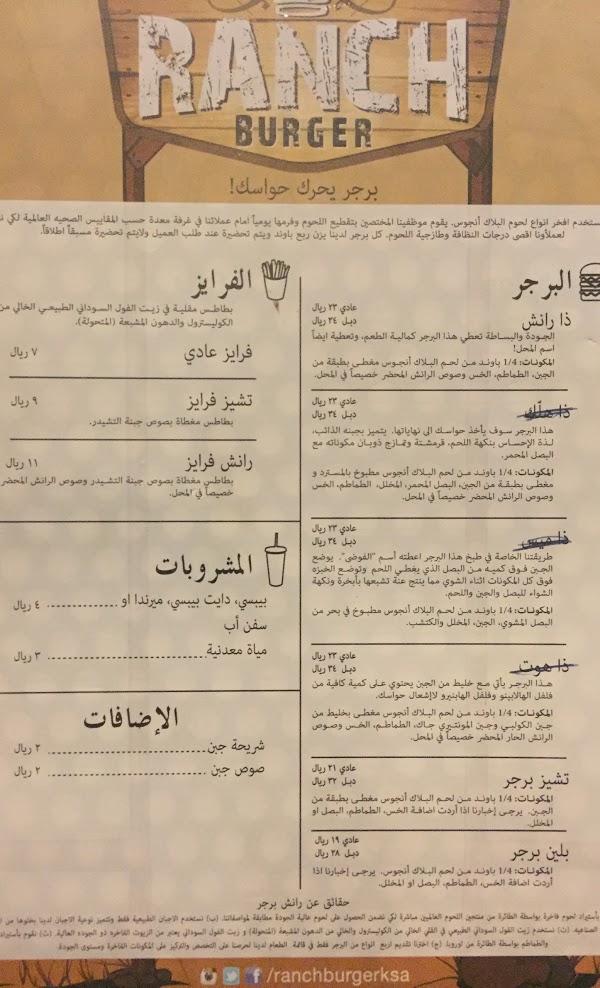 RANCH
BURGER
برجر يحرك حواسك!
ستخدم افخر انواع لحوم البلاك أنجوس. يقوم موظفينا المختصين بتقطيع اللحوم وفرمها يومياً امام عملائنا في غرفة معدة حسب المقاييس الصحيه العالمية لكي
لعملاؤنا اقصى درجات النظافة وطازجية اللحوم. كل برجر لدينا يزن ربع باوند ويتم تحضيرة عند طلب العميل ولايتم تحضيرة مسبقاً اطلاقاً.
البرجر
عادي ٢٣ ريال
ذا رانش
دبل ٣٤ ريال
الجودة والبساطة تعطي هذا البرجر كمالية الطعم، وتعطية ايضاً
اسم المحل!
المكونات: 1/4 باوند من لحم البلاك أنجوس مغطى بطبقة من
الجبن، الطماطم، الخس وصوص الرانش المحضر خصيصاً في المحل.
عادي ٢٣ ريال
دبل ٣٤ ريال
هذا البرجر سوف يأخذ حواسك الى نهاياتها. يتميز بجبنه الذائب،
لذة الإحساس بنكهة اللحم، قرمشتة وتمازج ذوبان مكوناته مع
البصل المحمر.
المكونات: 1/4 باوند من لحم البلاك أنجوس مطبوخ بالمسترد و
مغطى بطبقة من الجبن، البصل المحمر، المخلل، الطماطم، الخس
وصوص الرانش المحضر خصيصاً في المحل.
عادي ٢٣ ريال
دبل ٣٤ ريال
طريقتنا الخاصة في طبخ هذا البرجر اعطته أسم "الفوضى". يوضع
الجبن فوق كميه من البصل الذي يغطي اللحم وتوضع الخبزه
فوق كل المكونات اثناء الشوي مما ينتج عنة تشبعها بأبخرة ونكهة
الشواء للبصل والجبن واللحم.
المكونات: 1/4 باوند من لحم البلاك أنجوس مطبوخ في بحر من
البصل المشوي، الجبن، المخلل والكتشب.
عادي ٢٣ ريال
ذا هوت
دبل ٣٤ ريال
هذا البرجر يأتي مع خليط من الجبن يحتوي على كمية كافية من
فلفل الهالابينو وفلفل الهابنيرو لاإشعال حواسك.
المكونات: 1/4 باوند من لحم البلاك أنجوس مغطى بخليط من
جبن الكولبي وجبن المونتيري جاك، الطماطم، الخس وصوص
الرانش الحار المحضر خصيصاً في المحل.
عادي ٢١ ريال
تشيز برجر
دبل ٣٢ ريال
المكونات: 1/4 باوند من لحم البلاك أنجوس مغطى بطبقة من
الجبن. يرجى إخبارنا اذا أردت اضافة الخس، الطماطم، البصل او
المخلل.
عادي ١٩ ريال
بلين برجر
دبل ٢٨ ريال
المكونات: 1/4 باوند من لحم البلاك أنجوس. يرجى إخبارنا اذا
أردت اضافة الخس، الطماطم، البصل او المخلل.
الفرايز
بطاطس مقلية في زيت الفول السوداني الطبيعي الخالي من
الكوليسترول والدهون المشبعة (المتحولة).
فرايز عادي ٧ ريال
تشيز فرايز ٩ ريال
بطاطس مغطاة بصوص جبنة التشيدر.
رانش فرايز ١١ ريال
بطاطس مغطاة بصوص جبنة التشيدر وصوص الرانش المحضر
خصيصاً في المحل.
المشروبات
بيبسي، دايت بيبسي، ميرندا او ........ ٤ ريال
سفن أب
مياة معدنية ........ ٣ ريال
الإضافات
شريحة جبن ........ ٢ ريال
صوص جبن ........ ٢ ريال
حقائق عن رانش برجر
بأستيراد لحوم فاخرة بواسطة الطائرة من منتجين اللحوم العالميين مباشرة لكي نضمن الحصول على لحوم عالية الجودة مطابقة لمواصفاتنا. (ب) نستخدم الاجبان الطبيعية فقط وتتميز نوعية الاجبان لدينا بخلوها من
الصناعيه. (ت) نستخدم زيت الفول السوداني الطبيعي في القلي الخالي من الكوليسترول والخالي من الدهون المشبعة (المتحولة) و زيت الفول السوداني يعتبر من الزيوت الفاخره ذو الجوده العالية. (ث) نقوم بأستيراد
والطماطم بواسطة الطائرة من اوروبا. (ج) اخترنا تقديم اربع انواع من البرجر فقط في قائمة الطعام لدينا لحرصنا على التخصص والتركيز على المكونات الفاخرة ومستوى الجودة.
/ranchburgerksa